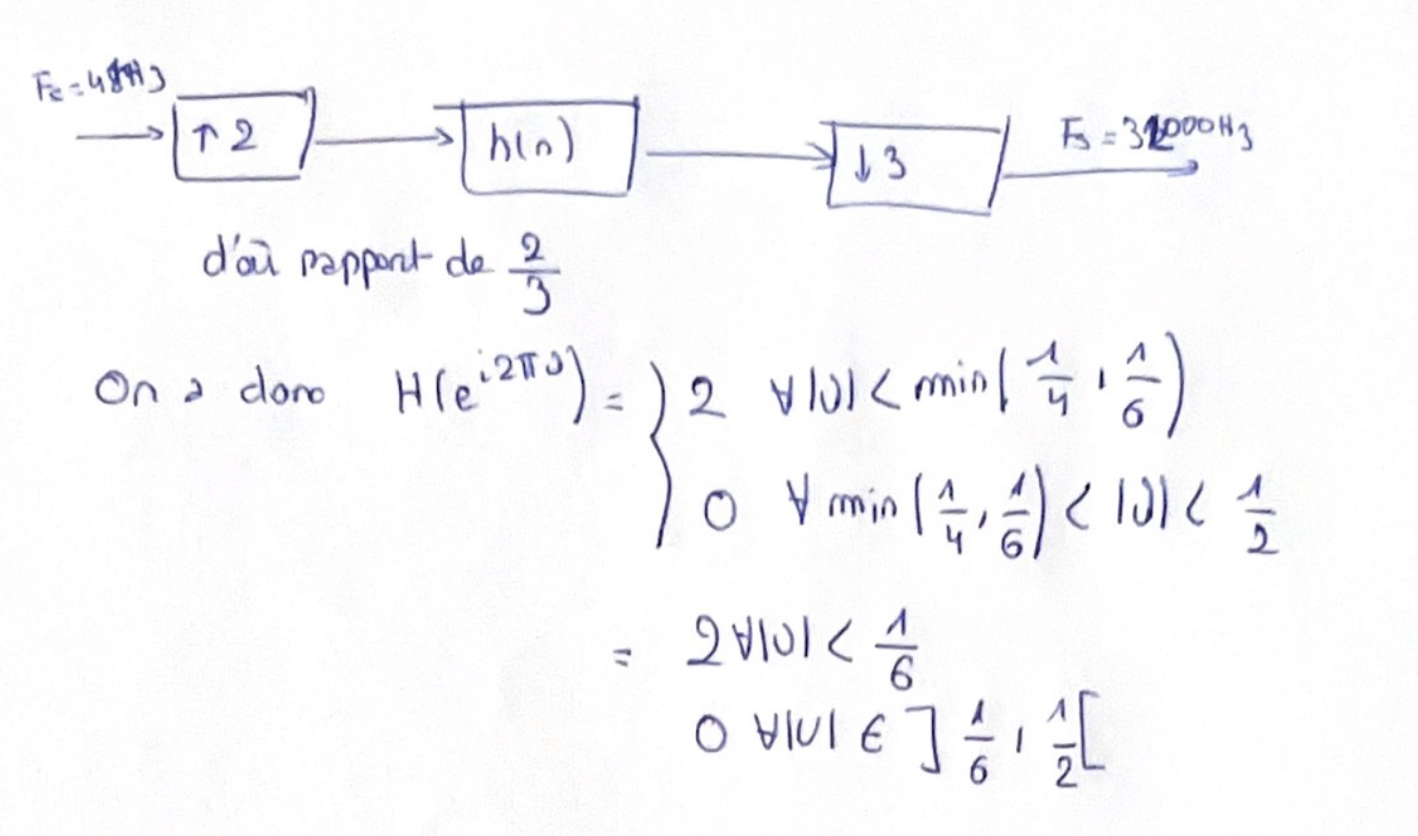 Fe = 48kHz
↑2
h(n)
↓3
Fs = 32000Hz
d'où rapport de 2/3
On a donc H(e^{i2πν}) = { 2 ∀|ν| < min(1/4, 1/6)
0 ∀ min(1/4, 1/6) < |ν| < 1/2
= 2 ∀|ν| < 1/6
0 ∀|ν| ∈ ]1/6, 1/2[